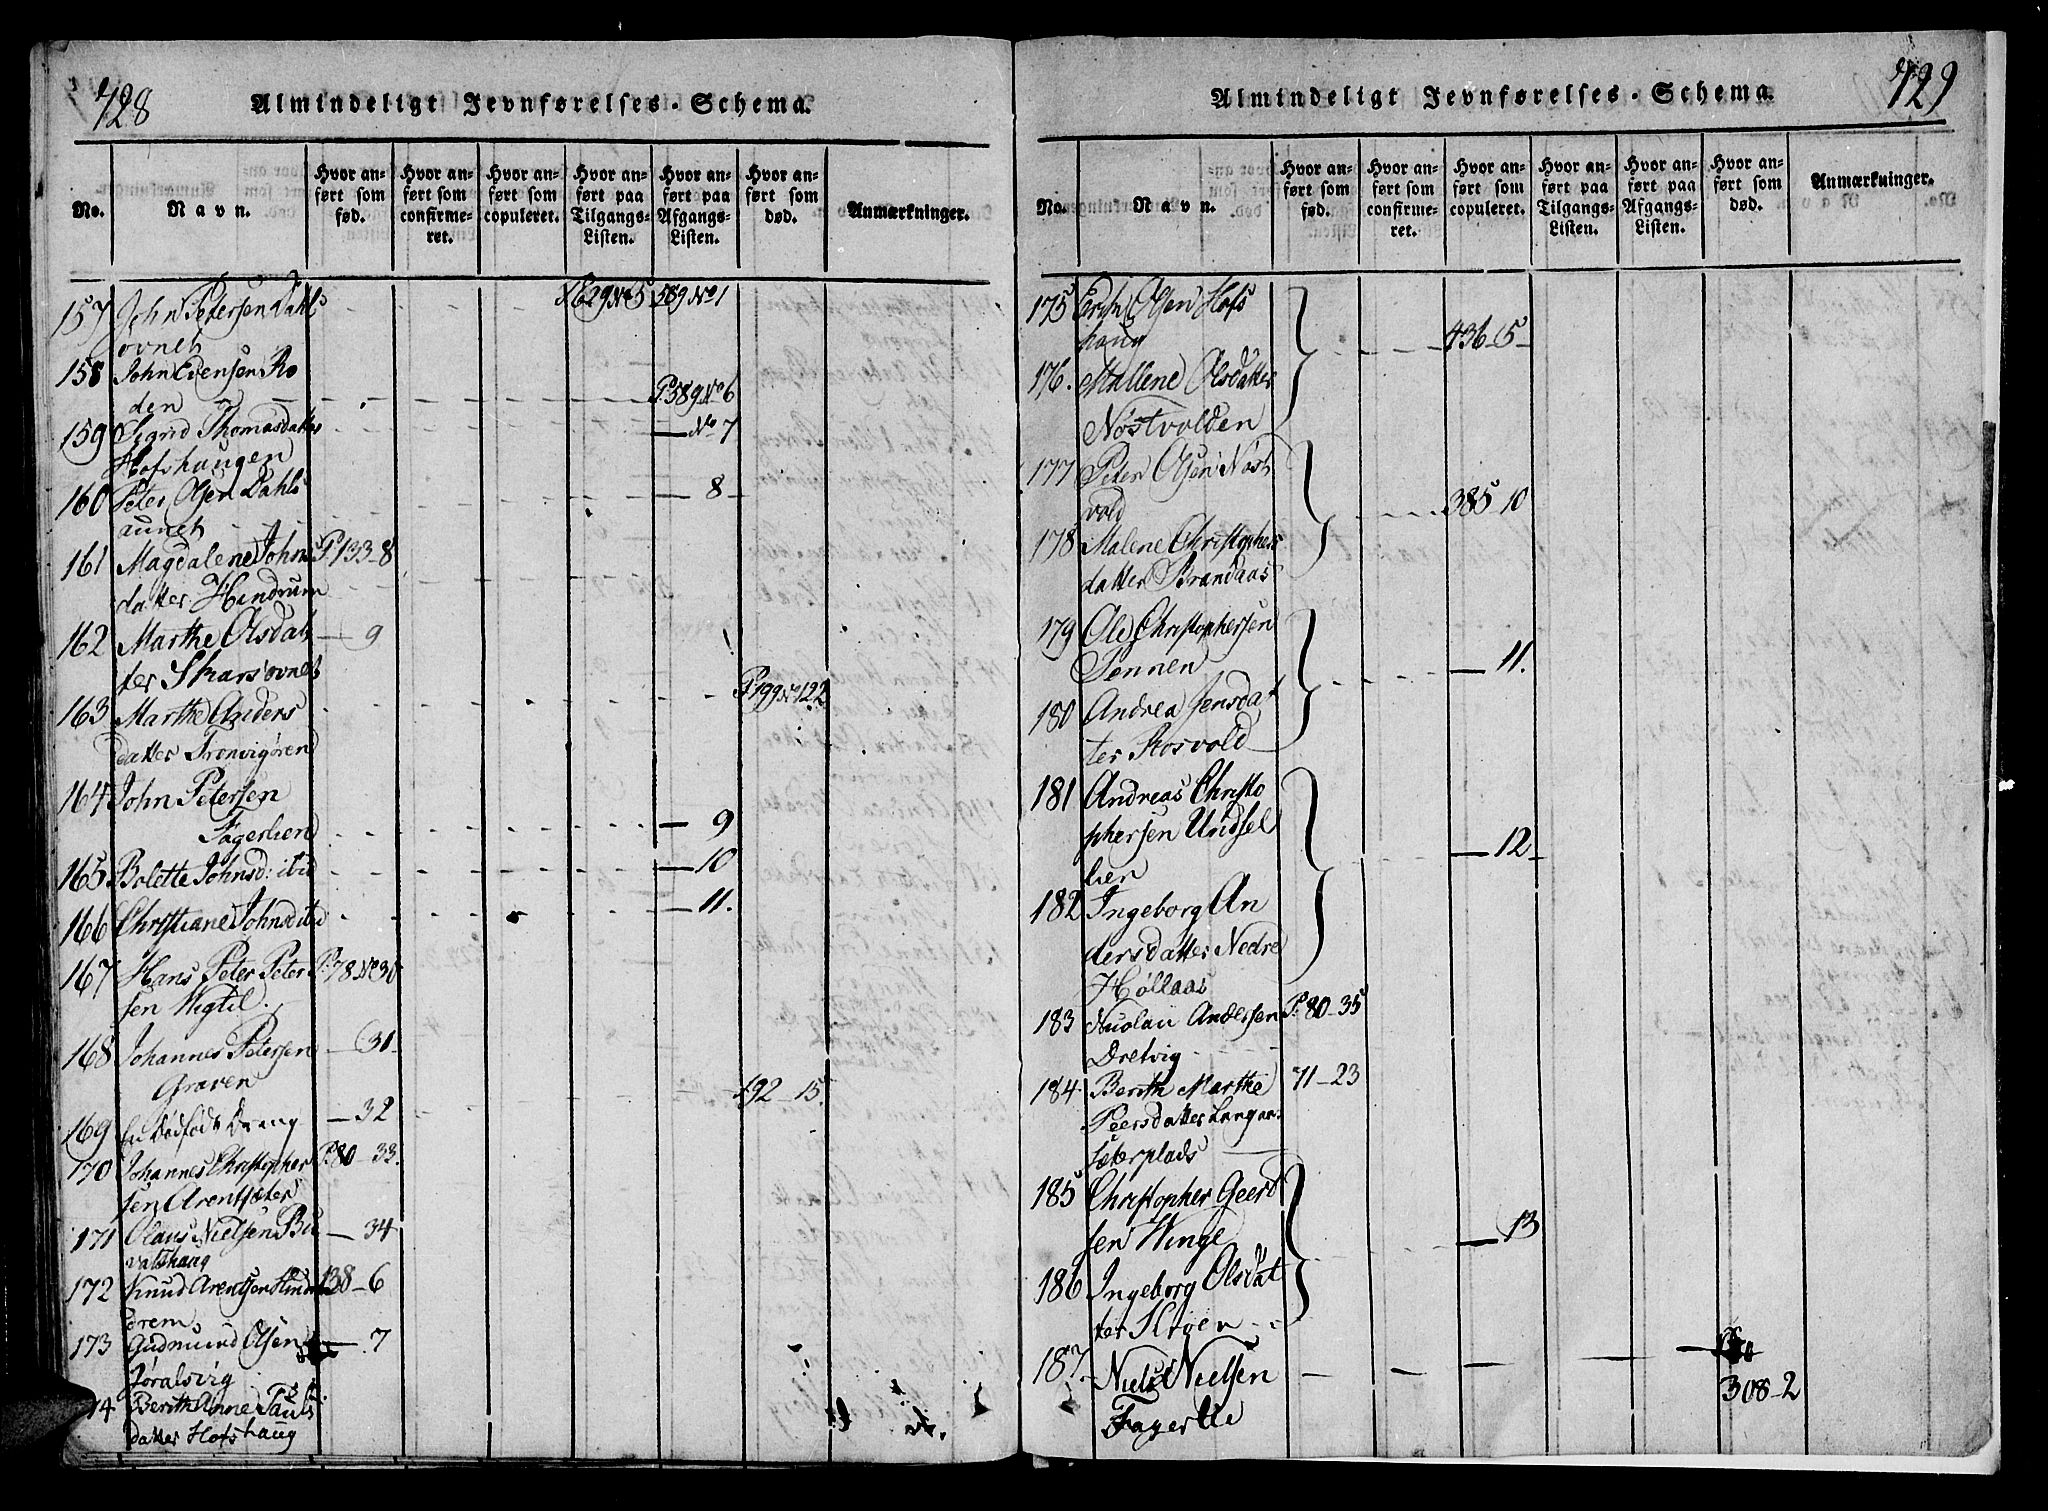 728
Almindeligt Jevnførelses-Schema.
No.
Navn.
Hvor anført som fød.
Hvor anført som confirmeret.
Hvor anført som copuleret.
Hvor anført paa Tilgangs-Listen.
Hvor anført paa Afgangs-Listen.
Hvor anført som død.
Anmærkninger.
157 John Petersen Dahls 629 No 5 589 No 1
ovneh
158 John Evensen Ro
den P. 589 No 6
159 Sigrid Thomasdatter — No 7
Hofshaugen
160 Peter Olsen Dahls — 8
auneh
161 Magdalene Johns P. 133-8
datter Hindrum
162 Marthe Olsdat — 9
ter Skarsovnet
163 Marthe Anders P. 199 No 122
datter Tronvigøren
164 John Petersen
Fagerlien — 9
165 Bolette Johnsd: ibid — 10
166 Christiane Johnsd ibid — 11.
167 Hans Peter Peter P. 78 No 30
sen Wigtil.
168 Johannes Petersen — 31
Graven
169 En dødfødt Dreng — 32 192 — 15.
170 Johannes Christopher P. 80 — 33.
sen Arentsæter
171 Olaus Nielsen Bu — 34
vatshaug
172 Knud Arentsen Hin 138 — 6
drem
173 Gudmund Olsen — 7
Joralsvig
174 Berith Anne Pauls
datter Hofshaug
729
Almindeligt Jevnførelses-Schema.
No.
Navn.
Hvor anført som fød.
Hvor anført som confirmeret.
Hvor anført som copuleret.
Hvor anført paa Tilgangs-Listen.
Hvor anført paa Afgangs-Listen.
Hvor anført som død.
Anmærkninger.
175 Erich Olsen Hofs
haug 436-5
176. Mallene Olsdatter
Nøstvolden
177 Peter Olsen Nøst
vold 385 10
178 Malene Christophers
datter Brandaas
179 Ole Christophersen
Sennen — 11.
180 Andrea Jensdat
ter Rosvold
181 Andreas Christo
phersen Undsel — 12
lien
182 Ingeborg An
dersdatter Nedre
Høllaas
183 Nicolai Andersen P. 80-35
Dretvig
184 Berith Marthe 71-23
Peersdatter Langaa
sæterplads
185 Christopher Geerd
sen Winge — 13
186 Ingeborg Olsdat
ter Skroen
187. Niels Nielsen
Fagerlie 308-2